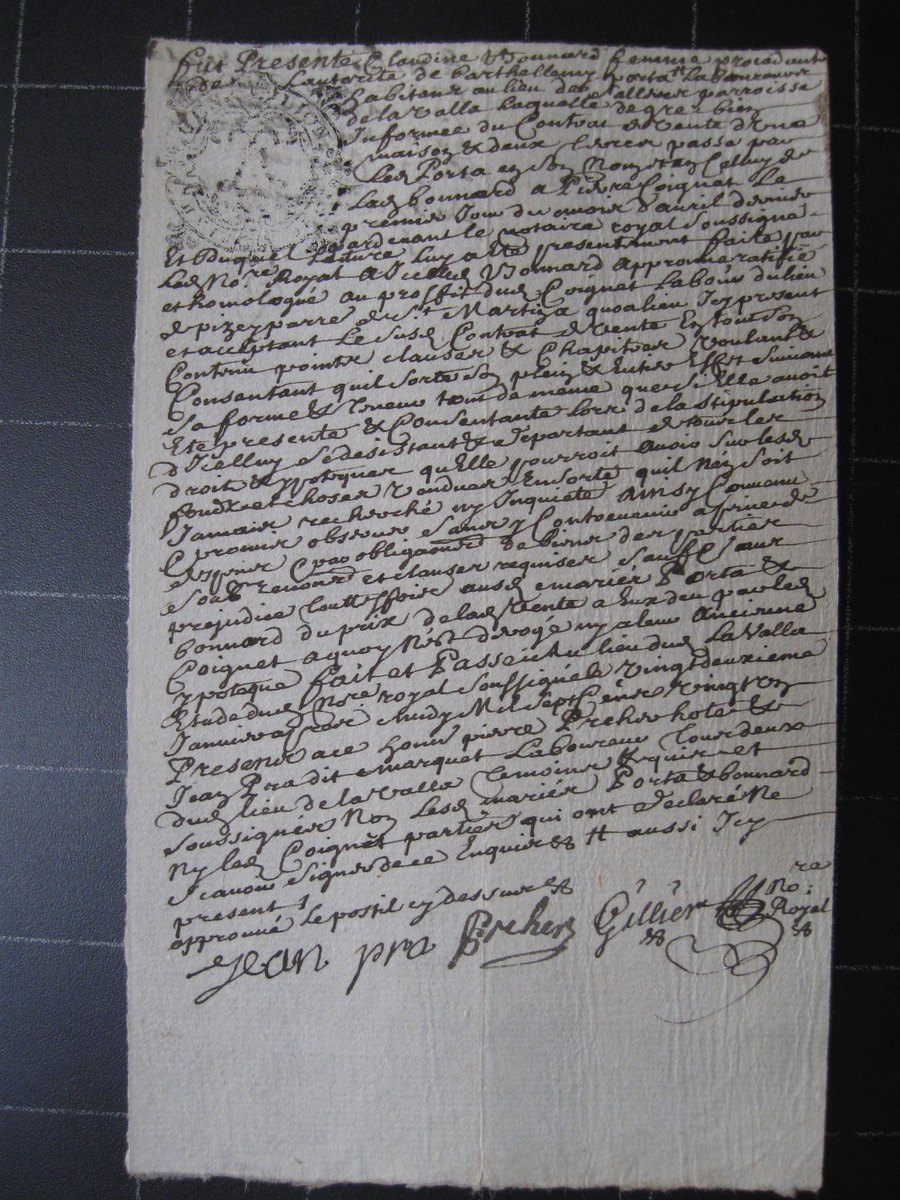 fut Presente Claudine Bonnard femme procedant
de Lautorite de Barthellemy porta Laboureur
habitans au lieu de parroisse
de la valla Laquelle de gre bien
Informée du Contrat de vente d'une
maison & deux passé par
Led Porta en son Nom & en Celluy de
Lad bonnard a Pierre Coignet Le
premier Jour du mois d'avril dernier
pardevant le notaire royal Soussigné
Et Duquel Lecture Luy a ete presentement faite par
Led No.re Royal a Icelle Bonnard approuve ratiffie
et homologué au proffit dud Coignet Labour du lieu
de pizey parre de St Martin a quoalieu Icy present
et acceptant Le Susd Contrat de vente En tout Son
Contenu points clauses & Chapitres voulant &
Consentant quil sorte Son plein & Entier Effet Suivant
Sa forme & teneur tout de meme que si Elle avoit
Eté presente & Consentante Lors de la Stipulation
d'Icelluy se desistant & departant de tous les
droit & ypoteques qu'Elle pourroit avoir Sur lesd
fonds et choses vendues En sorte quil N'en soit
Jamais recherché ny Inquieté Ainsy Convenu
promis observer Sans y Contrevenir a peine de
par obligaonrd de biens des parties
Soub renond et clauses requises Sauf & Sans
prejudice touttesfois ausd mariés Porta &
bonnard du prix de lad vente a Eux deu par led
Coignet a quoy N'est derogé ny a leur Ancienne
ypoteque fait et Passé Au lieu dud La Valla
Etude dud No.re royal soussigné le vingt deuxieme
Janvier apres midy Mil Sept Cens vingt un
Presens a ce honn pierre Preher hote &
Jean Pra dit marquet Laboureur tous deux
dud lieu de la valla temoins requis et
soussignés Non Lesd mariés Porta & bonnard
Ny led Coignet parties qui ont declaré Ne
Scavoir Signer de ce Enquis & # aussi Icy
present ?
approuvé Le postil cy dessus &
Jean pra Preher Gillier No.re Royal